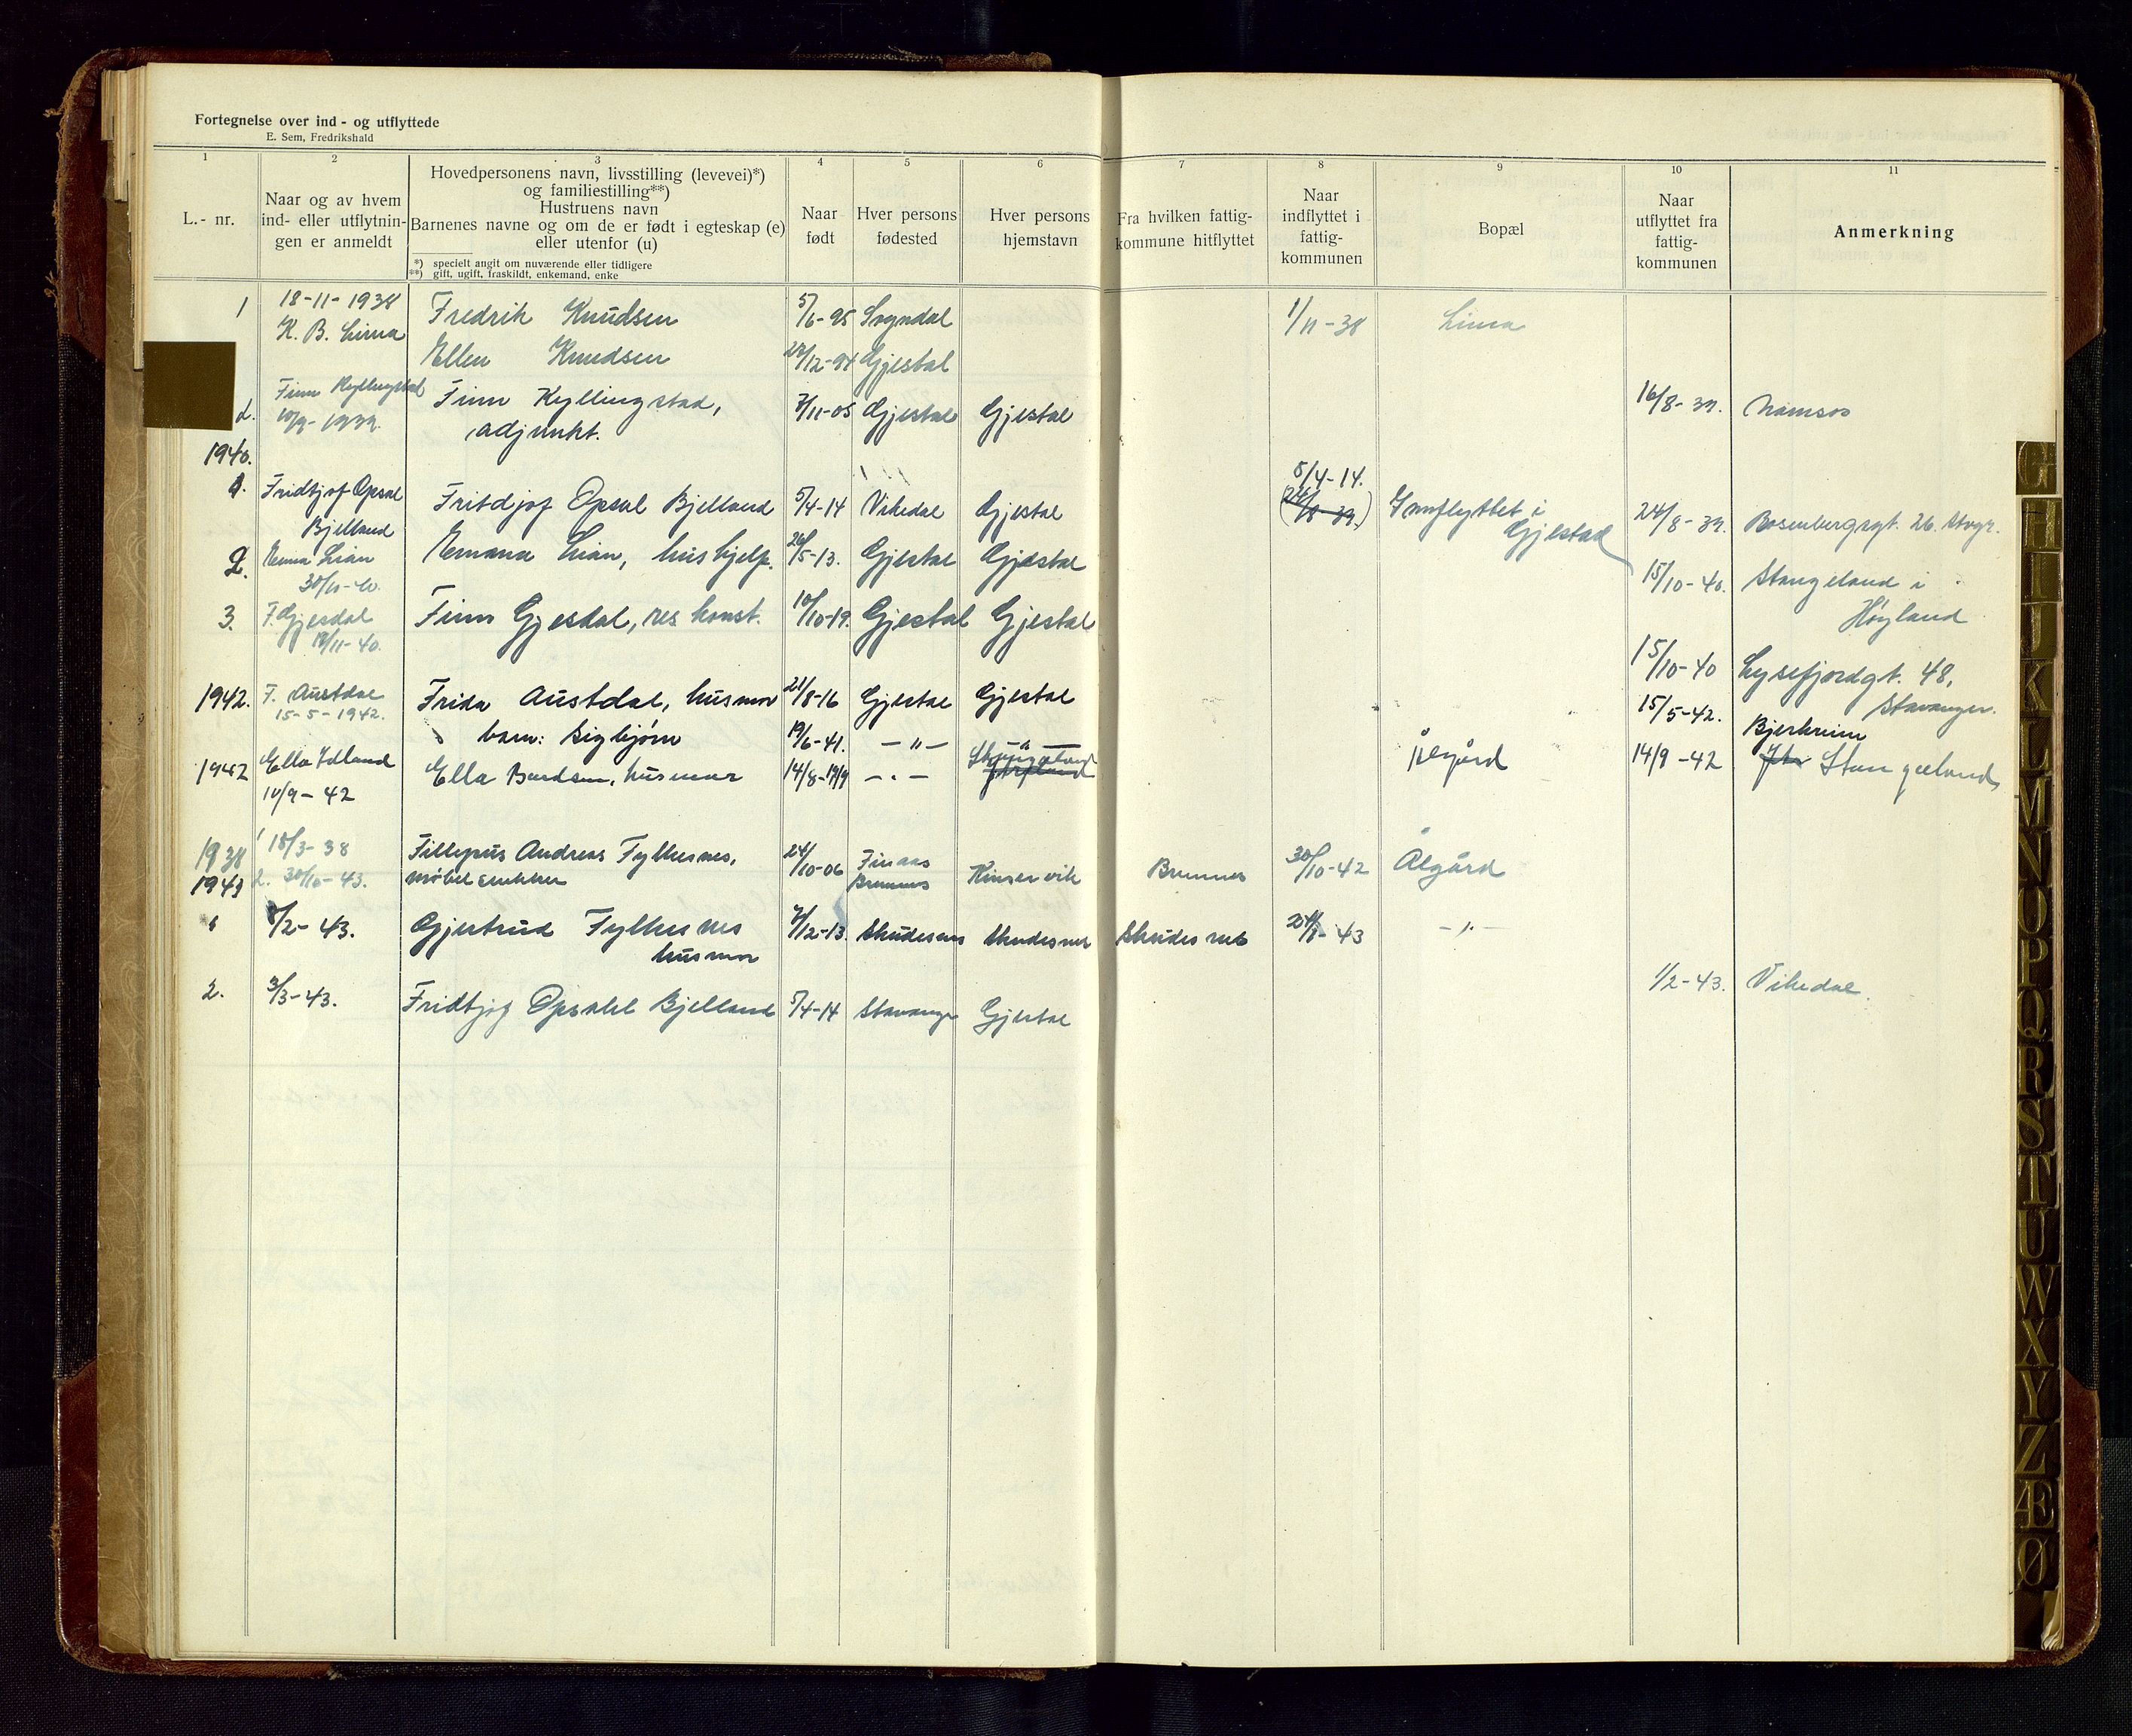 Fortegnelse over ind - og utflyttede
E. Sem, Fredrikshald
1 2 3 4 5 6 7 8 9 10 11
L.- nr.
Naar og av hvem
ind- eller utflytnin-
gen er anmeldt
Hovedpersonens navn, livsstilling (levevei)*)
og familiestilling**)
Hustruens navn
Barnenes navne og om de er født i egteskap (e)
eller utenfor (u)
*) specielt angit om nuværende eller tidligere
**) gift, ugift, fraskildt, enkemand, enke
Naar
født
Hver persons
fødested
Hver persons
hjemstavn
Fra hvilken fattig-
kommune hitflyttet
Naar
indflyttet i
fattig-
kommunen
Bopæl
Naar
utflyttet fra
fattig-
kommunen
Anmerkning
1 18-11-1938 Fredrik Knudsen 5/6-95 Sogndal 1/11-38 Lima
K. B. Lima
Ellen Knudsen /12-94 Gjestal
Finn Kyllingstad Finn Kyllingstad, 7/11-05 Gjestal Gjestal 16/8-39. Namsos
2. 10/9-1939. adjunkt.
1940.
1. Fridtjof Opsal Fritdjof Opsal Bjelland 5/4-14 Vikedal Gjestal 5/4-14. Innflyttet i 24/8-39. Rosenbergsgt. 26. Stvgr.
Bjelland (24/8-39.) Gjestad
2. Emma Lian Emana Lian, hushjelp. 26/5-13. Gjestal Gjestal 15/10-40. Stangeland i
30/10-40. Høyland
3. F. Gjesdal Finn Gjesdal, res konst. 10/10-19. Gjestal Gjestal 15/10-40 Lysefjordgt. 48,
18/11-40. Stavanger.
1942. F. Austdal Frida Austdal, husmor 21/8-16 Gjestal Gjestal 15/5-42. Bjerkreim
15-5-1942. barn: Sigbjørn 19/6-41. —"— —"—
1942 Ella Idland Ella Bardsen, husmor 14/8-1919 —"— Ålgård 14/9-42 Stangeland
10/9-42
1938 1 18/3-38 Fillipus Andreas Fylkesnes, 24/10-06 Finaas Kinservik Bremnes 30/10-42 Ålgård
1943 2. 30/10-43. møbelsnekker Bremnes
1 8/2-43. Gjertrud Fylkesnes 4/12-13. Skudesnes Skudesnes Skudesnes -43 —"—
husmor
2. 3/3-43. Fridtjof Opsahl Bjelland 5/4-14 Stavanger Gjestal 1/2-43. Vikedal.
G
H
I
J
K
L
M
N
O
P
Q
R
S
T
U
W
X
Y
Z
Æ
Ø